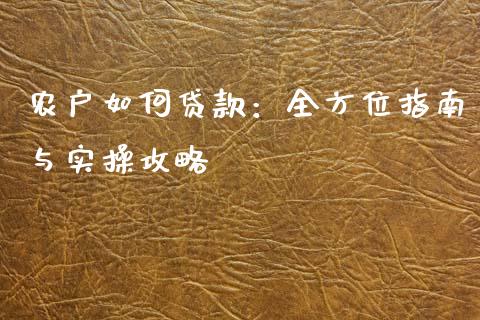 农户如何贷款：全方位指南
与实操攻略